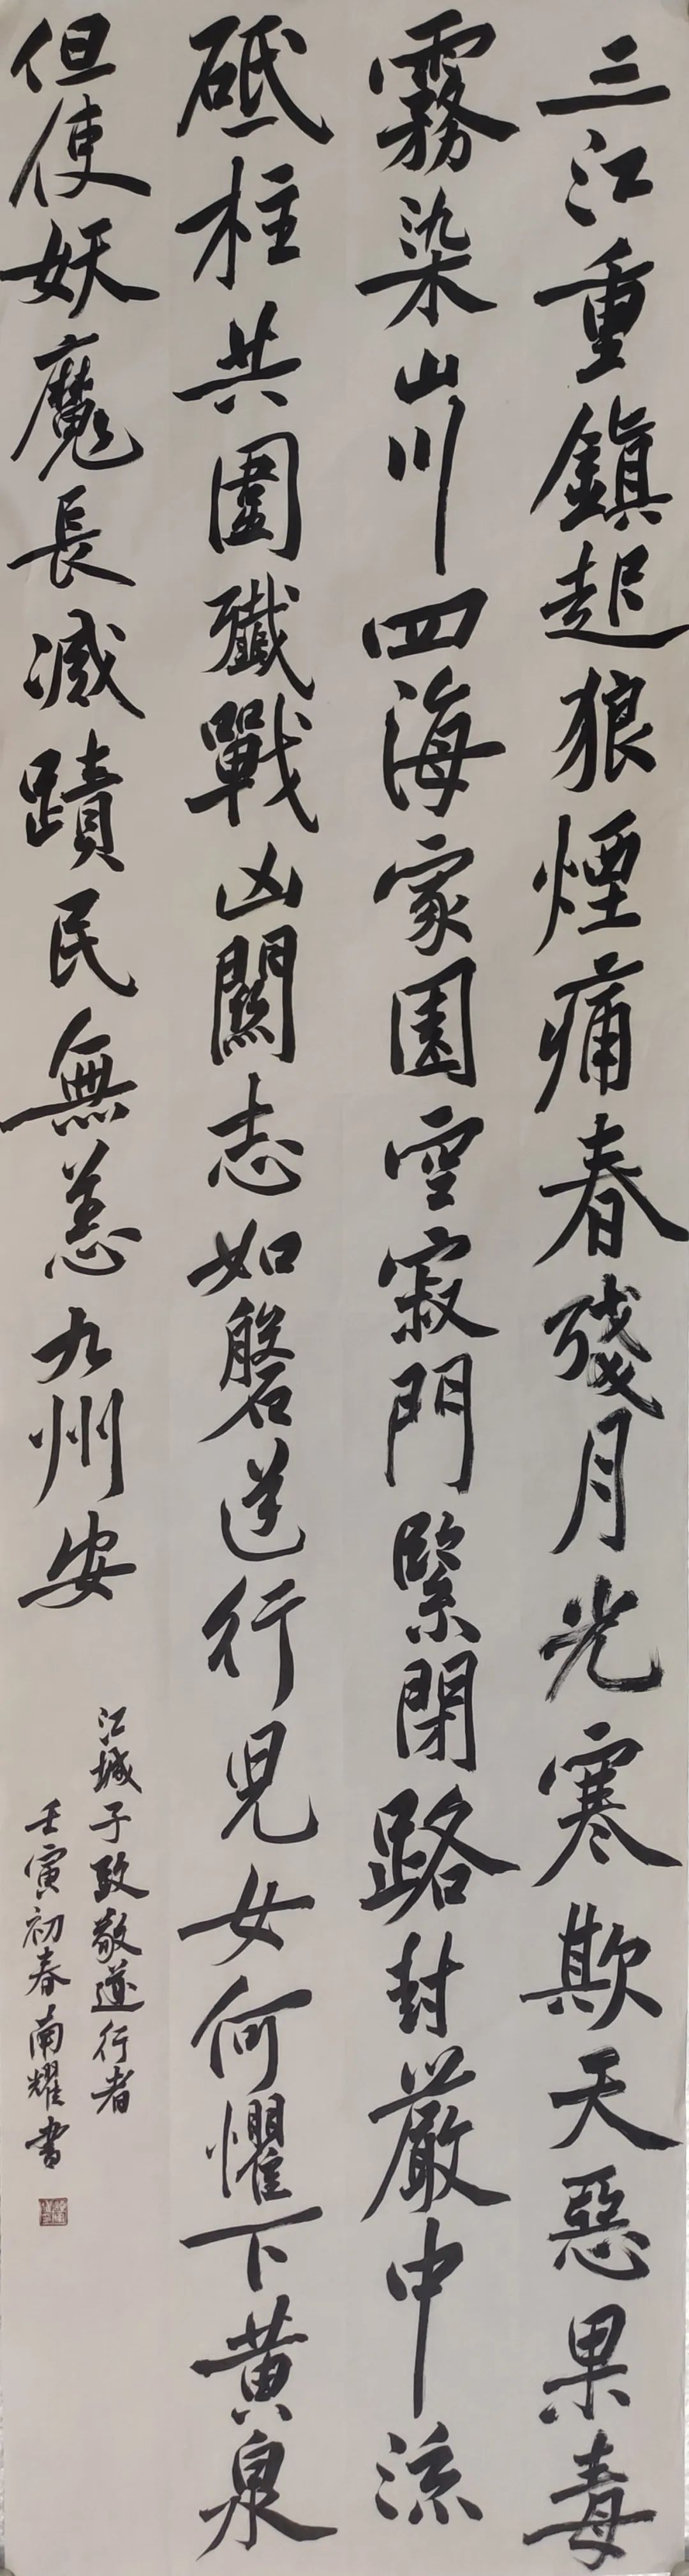 三江重鎮起狼煙痛春殘月光寒欺天惡果毒
霧染山川四海家園空寂門緊閉路封嚴中流
砥柱共圍殲戰凶關志如磐逆行兒女何懼下黃泉
但使妖魔長滅蹟民無恙九州安
江城子致敬逆行者
壬寅初春南耀書